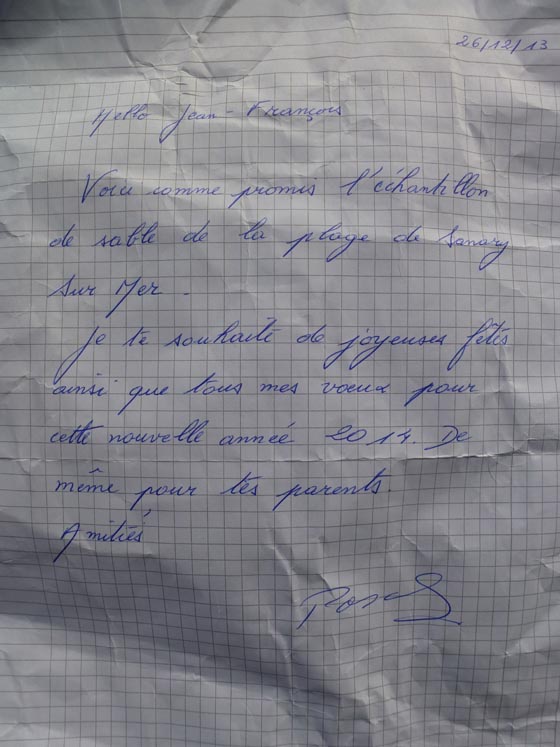 26/12/13
Hello Jean-François
Voici comme promis l'échantillon
de sable de la plage de Sanary
Sur Mer.
Je te souhaite de joyeuses fêtes
ainsi que tous mes voeux pour
cette nouvelle année 2014. De
même pour tes parents.
Amitiés